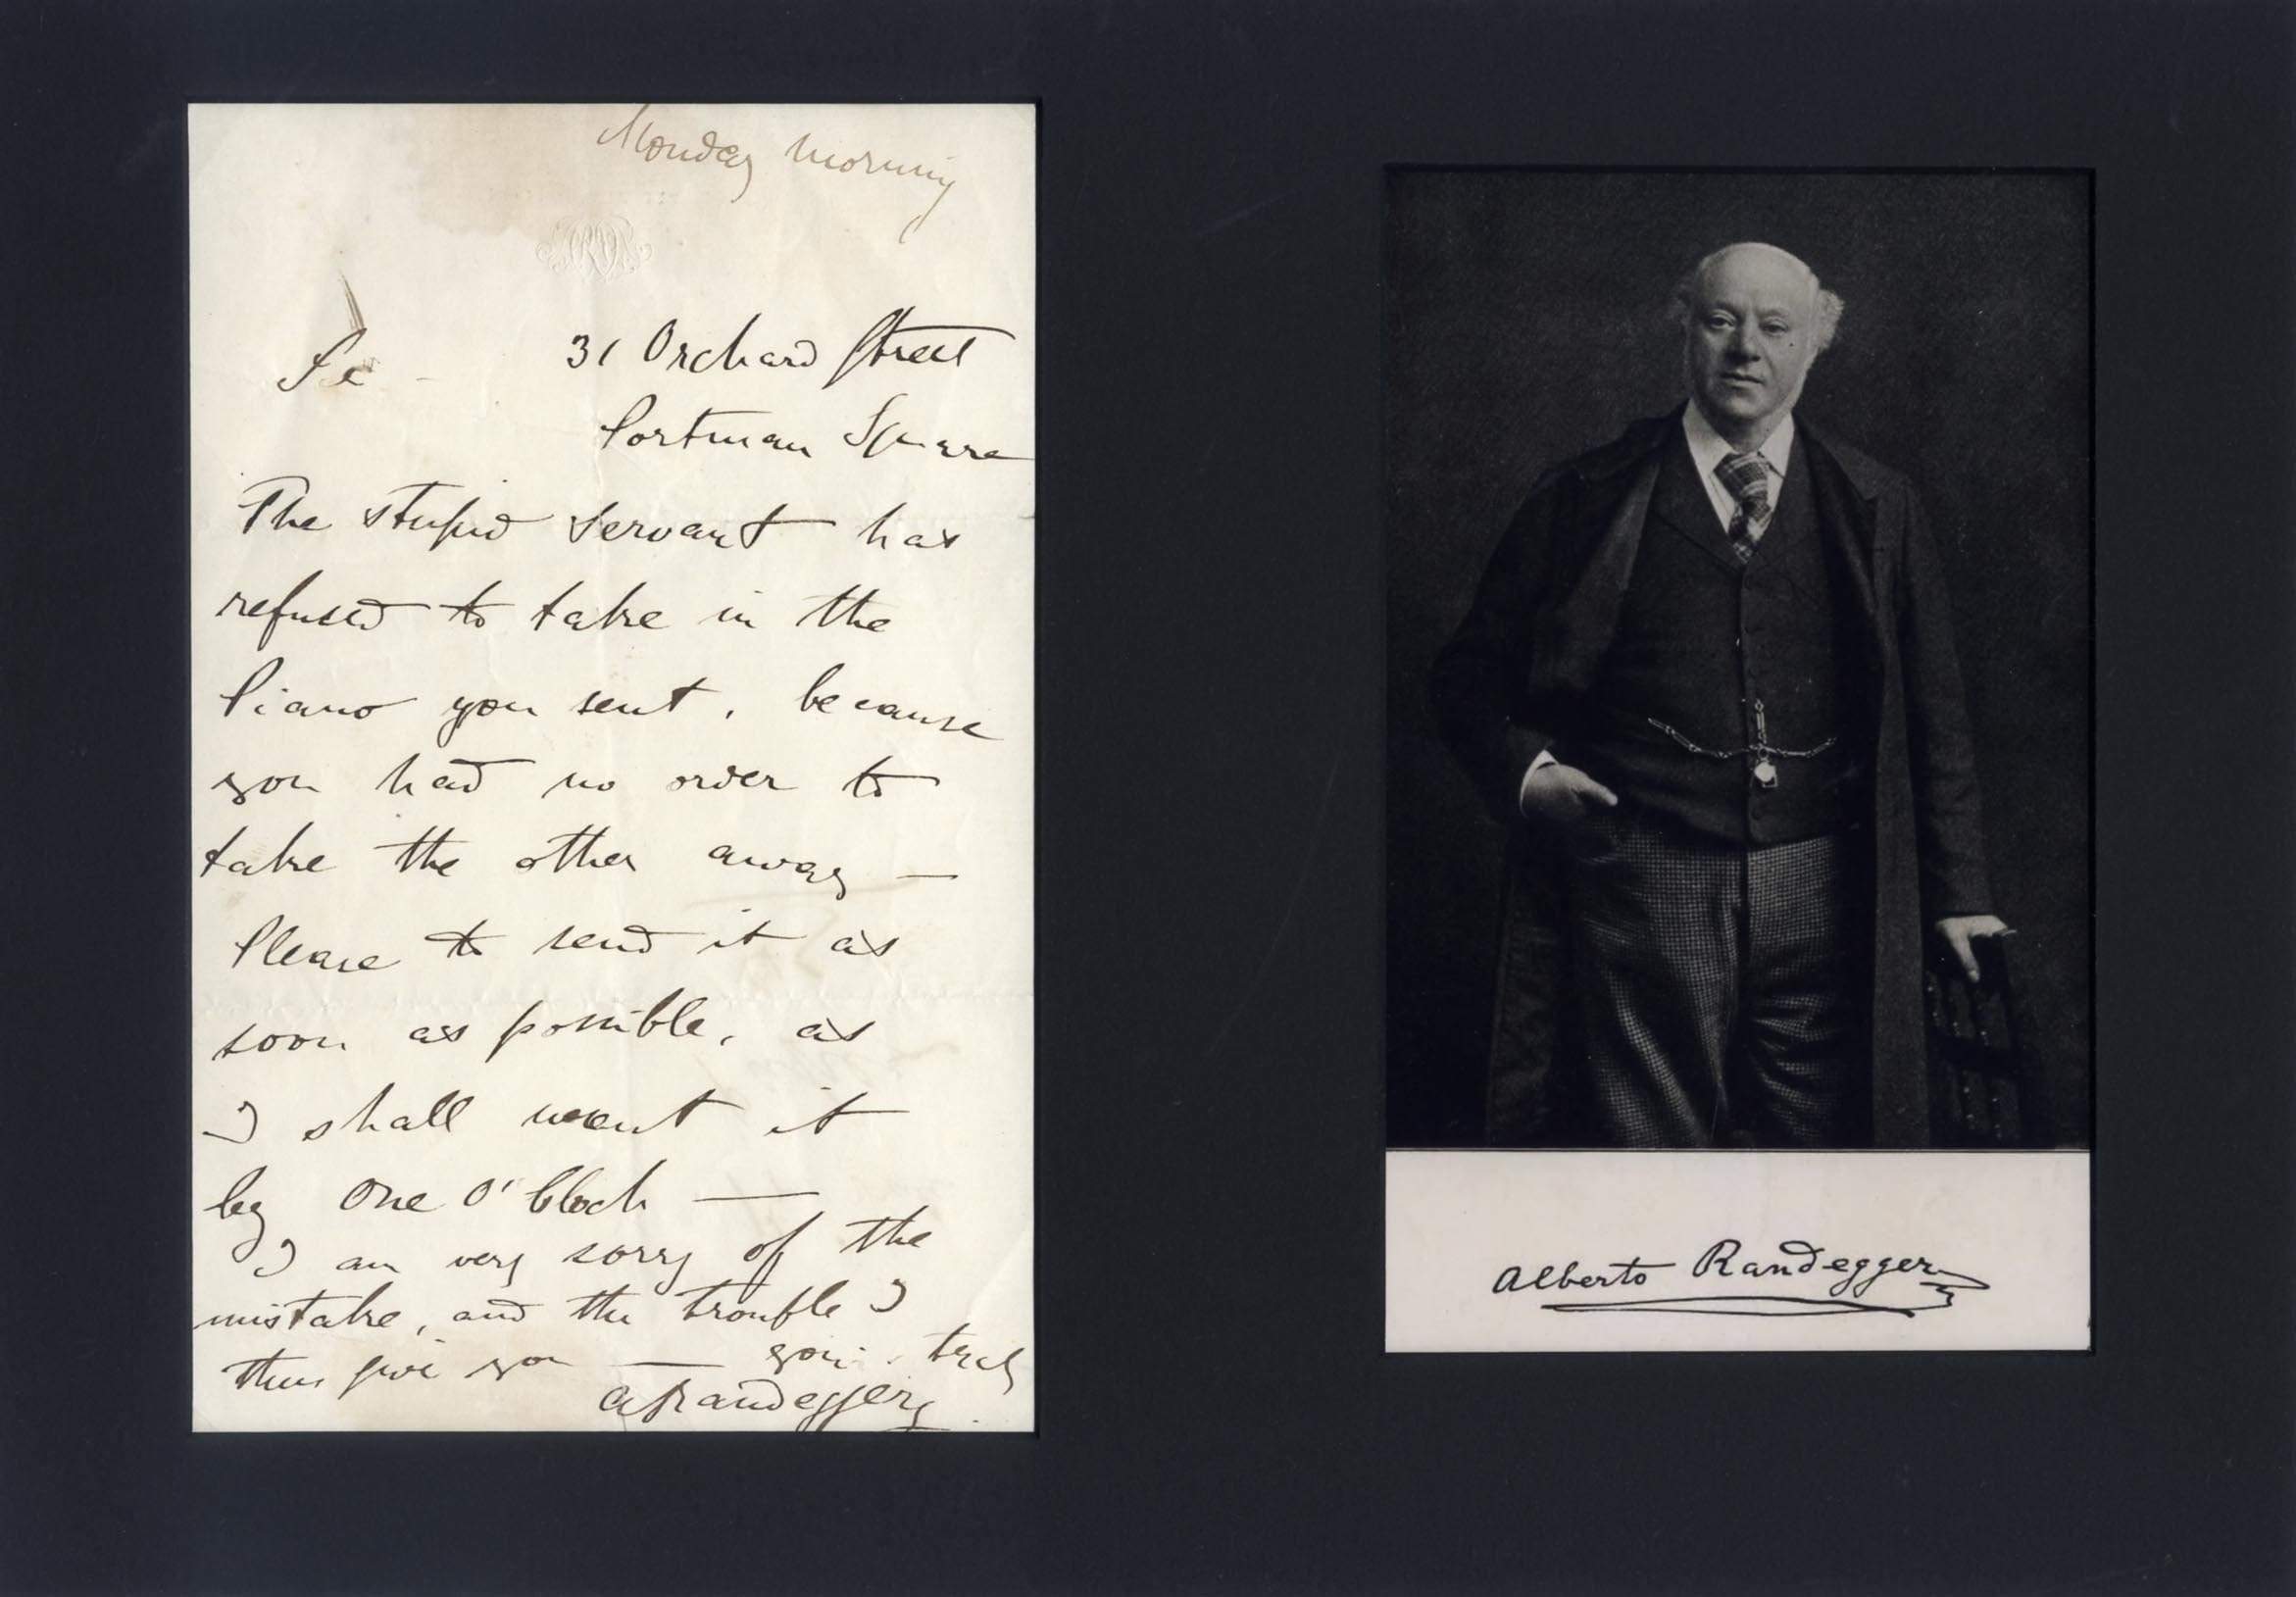 Monday morning
31 Orchard Street
Portman Square
The stupid servant has
refused to take in the
Piano you sent, because
you had no order to
take the other away —
Please to send it as
soon as possible, as
I shall want it
by One O'Clock —
I am very sorry of the
mistake, and the trouble I
thus give you — truly
ARandegger
Alberto Randegger